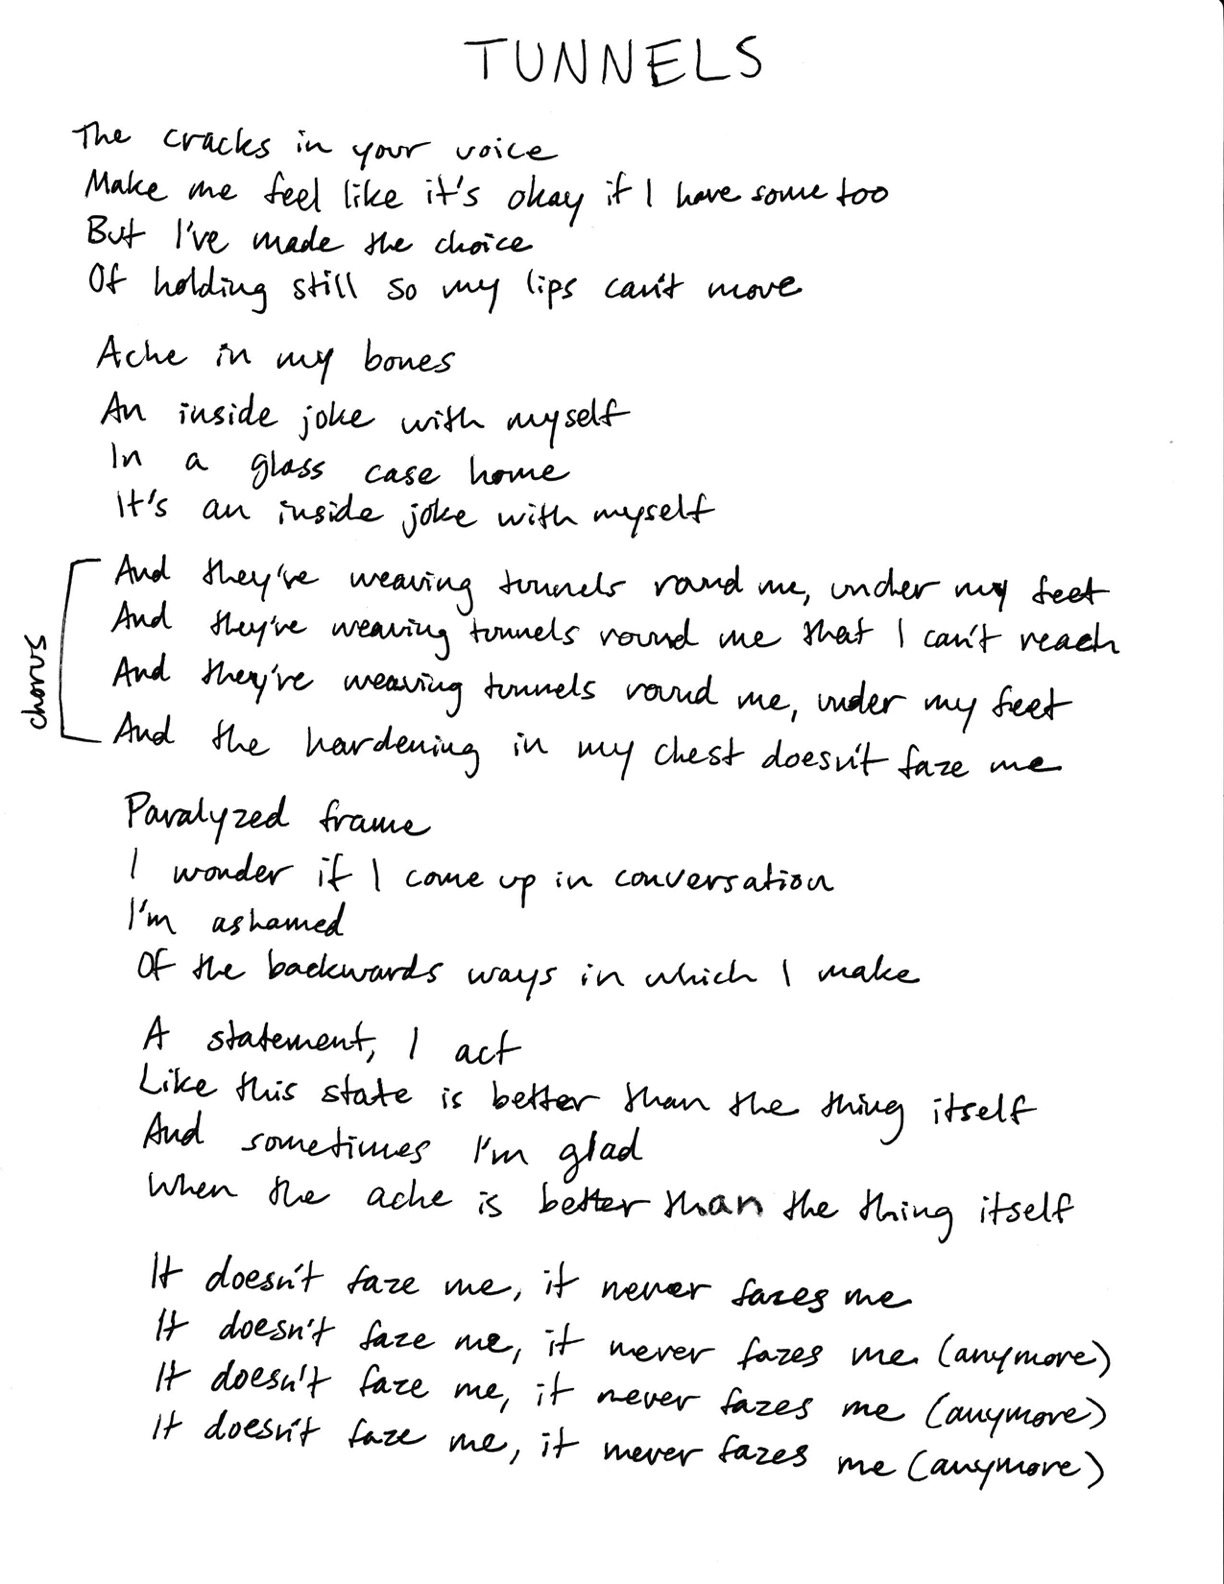 TUNNELS
The cracks in your voice
Make me feel like it's okay if I have some too
But I've made the choice
Of holding still so my lips can't move
Ache in my bones
An inside joke with myself
In a glass case home
It's an inside joke with myself
chorus
And they're weaving tunnels round me, under my feet
And they're weaving tunnels round me that I can't reach
And they're weaving tunnels round me, under my feet
And the hardening in my chest doesn't faze me
Paralyzed frame
I wonder if I come up in conversation
I'm ashamed
Of the backwards ways in which I make
A statement, I act
Like this state is better than the thing itself
And sometimes I'm glad
When the ache is better than the thing itself
It doesn't faze me, it never fazes me
It doesn't faze me, it never fazes me (anymore)
It doesn't faze me, it never fazes me (anymore)
It doesn't faze me, it never fazes me (anymore)